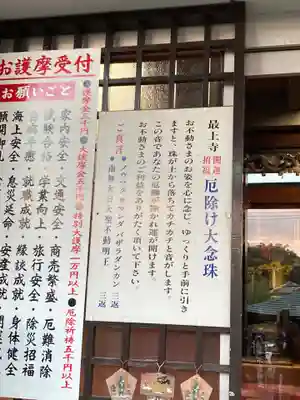 最上寺 開運招福 厄除け大念珠
お不動さまのお姿を心に念じ、ゆっくりと手前に引き
ますと、珠が上から落ちてカチカチと音がします。
この音であなたの厄難が除かれ運が開けます。
お不動さまのご利益をありがたく頂いて下さい。
ご真言
●ノウマクサマンダバザラダンカン 三返
●南無大日大聖不動明王 三返
お護摩受付
お願いごと
●護摩金三千円
●大護摩金五千円
●特別大護摩一万円以上
●厄除祈祷五千円以上
家内安全・交通安全・商売繁盛・厄難消除
学業向上・旅行安全・除災招福
就職成就・縁談成就・身体健全
海上安全・息災延命・安産成就